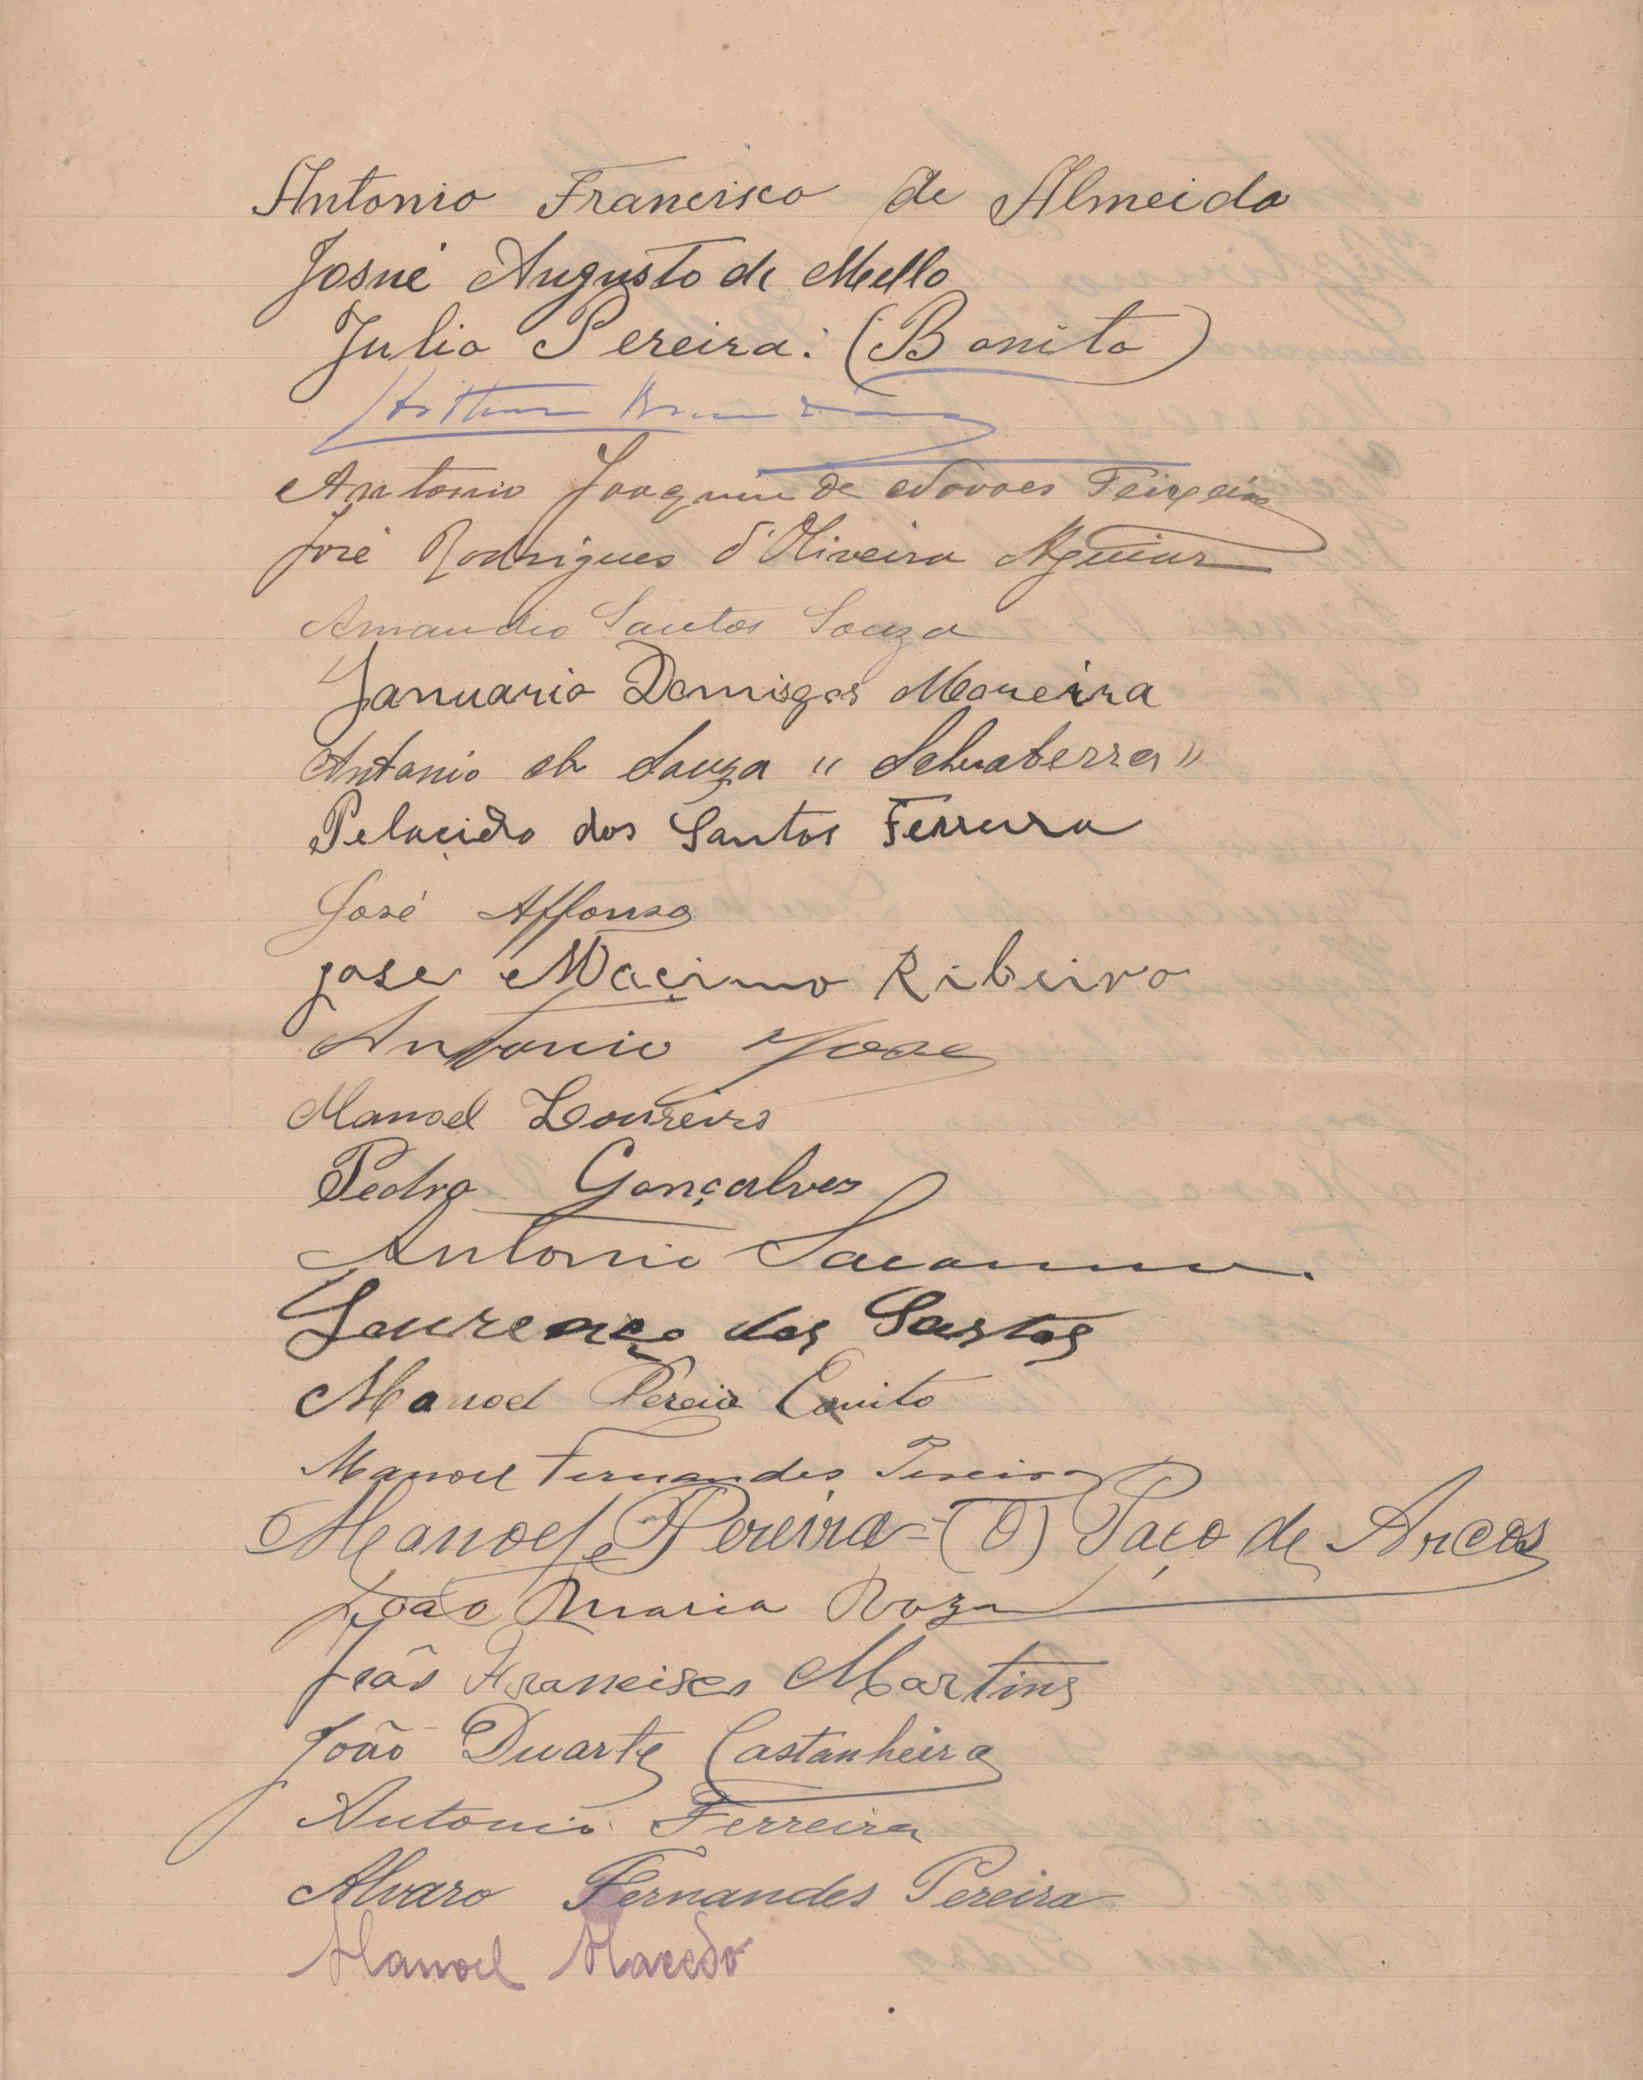 Antonio Francisco de Almeida
Josué Augusto de Mello
Julio Pereira: (Bonito)
Arthur
Antonio Joaquim de Novaes Teixeira
José Rodrigues d'Oliveira Aguiar
Amandio Santos Souza
Januario Domisgos Moreira
Antonio de Souza "Selvaterra"
Pelacido dos Santos Ferreira
José Affonso
jose Macimo Ribeiro
Antonio Jose
Manoel Loureiro
Pedro Gonçalves
Antonio
Lourenço dos Santos
Manoel Pereia
Manoel Fernandes Pereira
Manoel Pereira-(O) Paço de Arcos
João Maria Roza
João Francisco Martins
João Duarte Castanheira
Antonio Ferreira
Alvaro Fernandes Pereira
Manoel Macedo